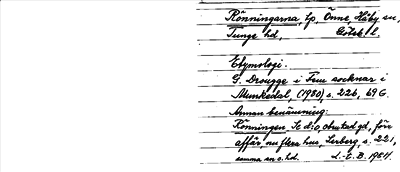 Rönningarna, lp, Önne, Håby sn,
Tunge hd, Götsb l.
Etymologi.
G. Drougge i Fem socknar i
Munkedal, (1980) s. 226, 69 G.
Annan benämning:
Rönningen, Se d:o, obrutad gd, förr
affär nu flera hus, Lerberg, s. 221,
samma sn o. hd. L.-E. B. 1984.